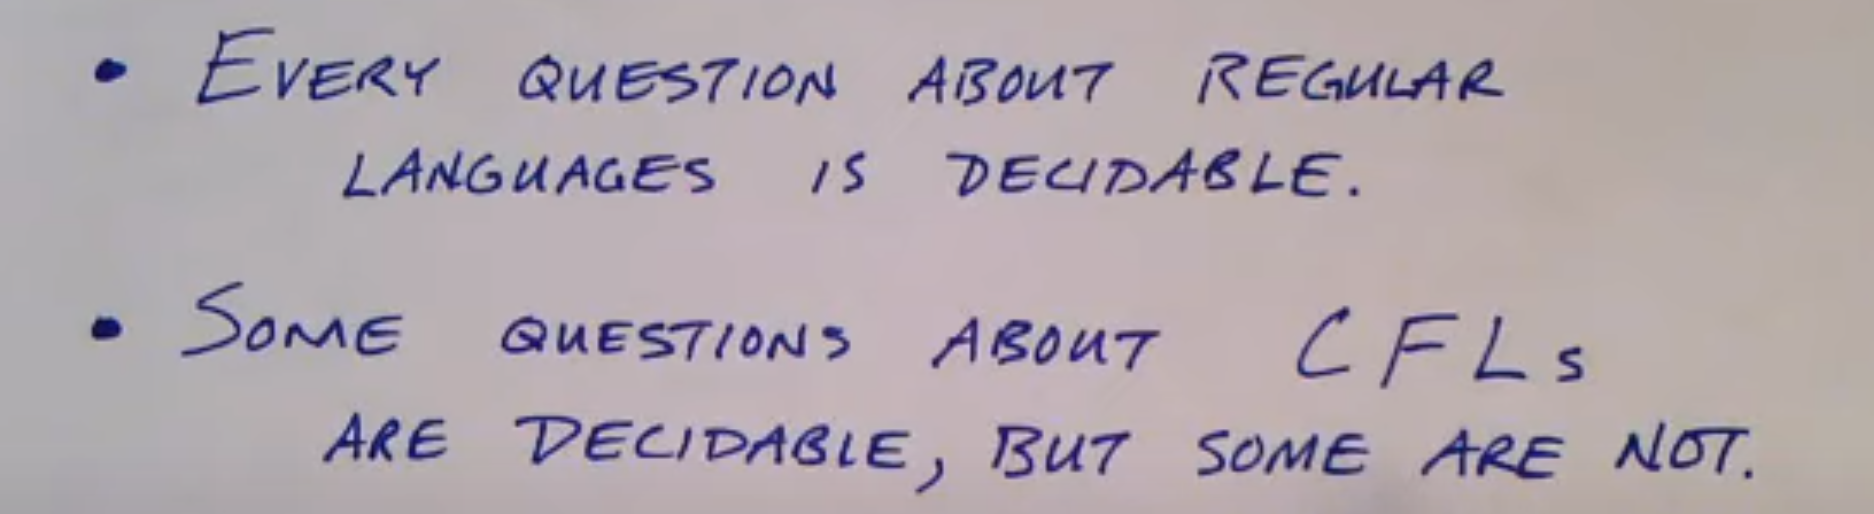 • EVERY QUESTION ABOUT REGULAR
LANGUAGES IS DECIDABLE.
• SOME QUESTIONS ABOUT CFLs
ARE DECIDABLE, BUT SOME ARE NOT.